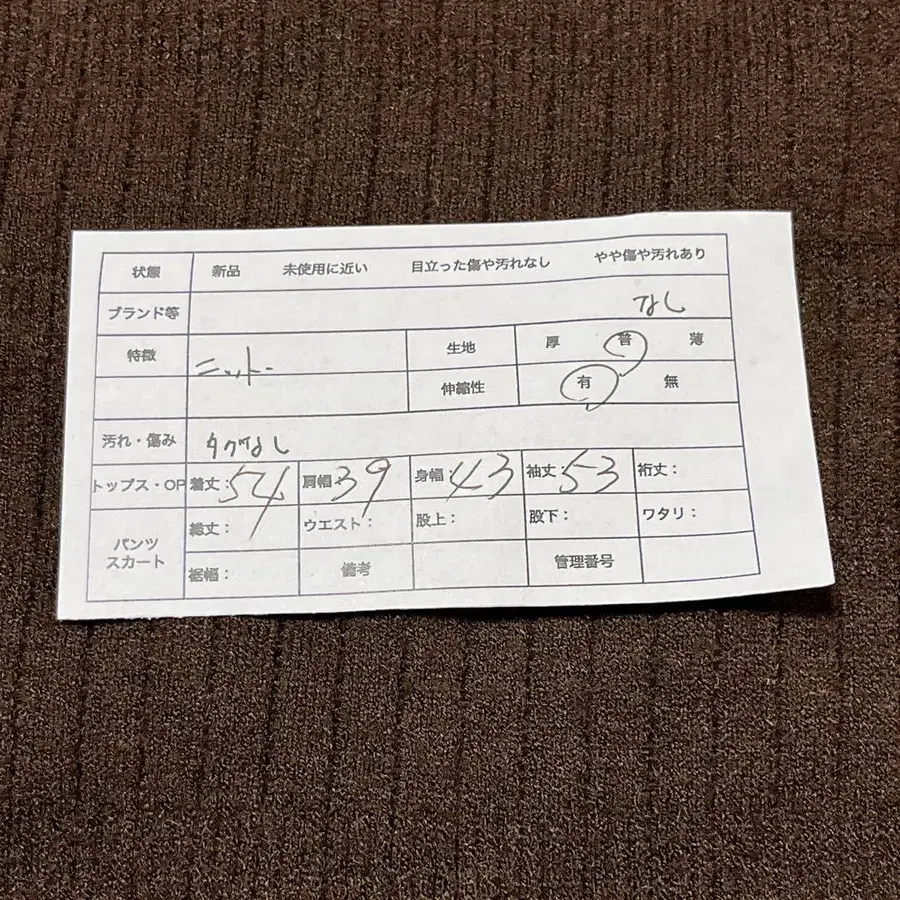 状態 新品 未使用に近い 目立った傷や汚れなし やや傷や汚れあり
ブランド等 なし
特徴 ニット 生地 厚 普 薄
伸縮性 有 無
汚れ・傷み タグなし
トップス・OP 着丈：54 肩幅：39 身幅：43 袖丈：53 裄丈：
パンツ スカート 総丈： ウエスト： 股上： 股下： ワタリ：
裾幅： 備考 管理番号